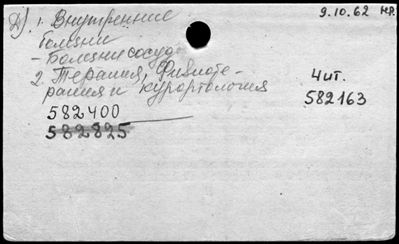 Д). 1. Внутренние
болезни
- Болезни сосудов
2. Терапия, Физиоте-
рапия и курортология
582400
582825
9.10.62 нр.
Чит.
582163